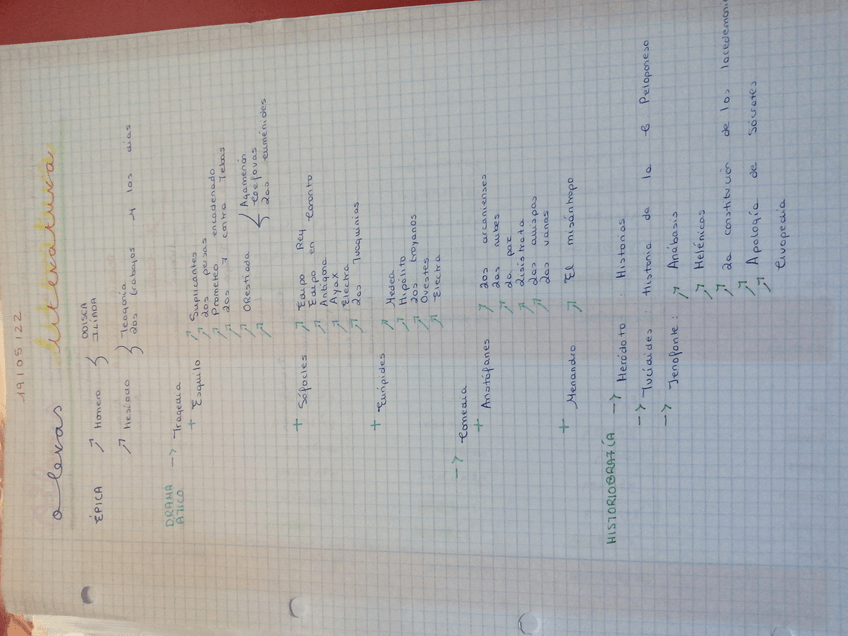 19/05/22
Obras literatura
ÉPICA ↗ Homero { ODISEA
ILIADA
↗ Hesíodo } Teogonía
Los trabajos y los días
DRAMA ÁTICO --> Tragedia
+ Esquilo ↗ Suplicantes
↗ Los persas
↗ Prometeo encadenado
↗ Los 7 contra Tebas
↗ ORestiada { Agamenón
Coéforas
Las euménides
+ Sófocles ↗ Edipo Rey
↗ Edipo en Coronto
↗ Antígona
↗ Ayax
↗ Electra
↗ Las Traquinias
+ Eurípides ↗ Medea
↗ Hipólito
↗ Los troyanos
↗ Orestes
↗ Electra
--> Comedia
+ Aristófanes ↗ Los arcanienses
↗ Las nubes
↗ La paz
↗ Lisístrata
↗ Las avispas
↗ Las ranas
+ Menandro ↗ El misántropo
HISTORIOGRAFÍA --> Heródoto : Historias
--> Tucídides : Historia de la G Peloponeso
--> Jenofonte : ↗ Anábasis
↗ Helénicas
↗ La constitución de los lacedemonios
↗ Apología de Sócrates
↗ Ciropedia